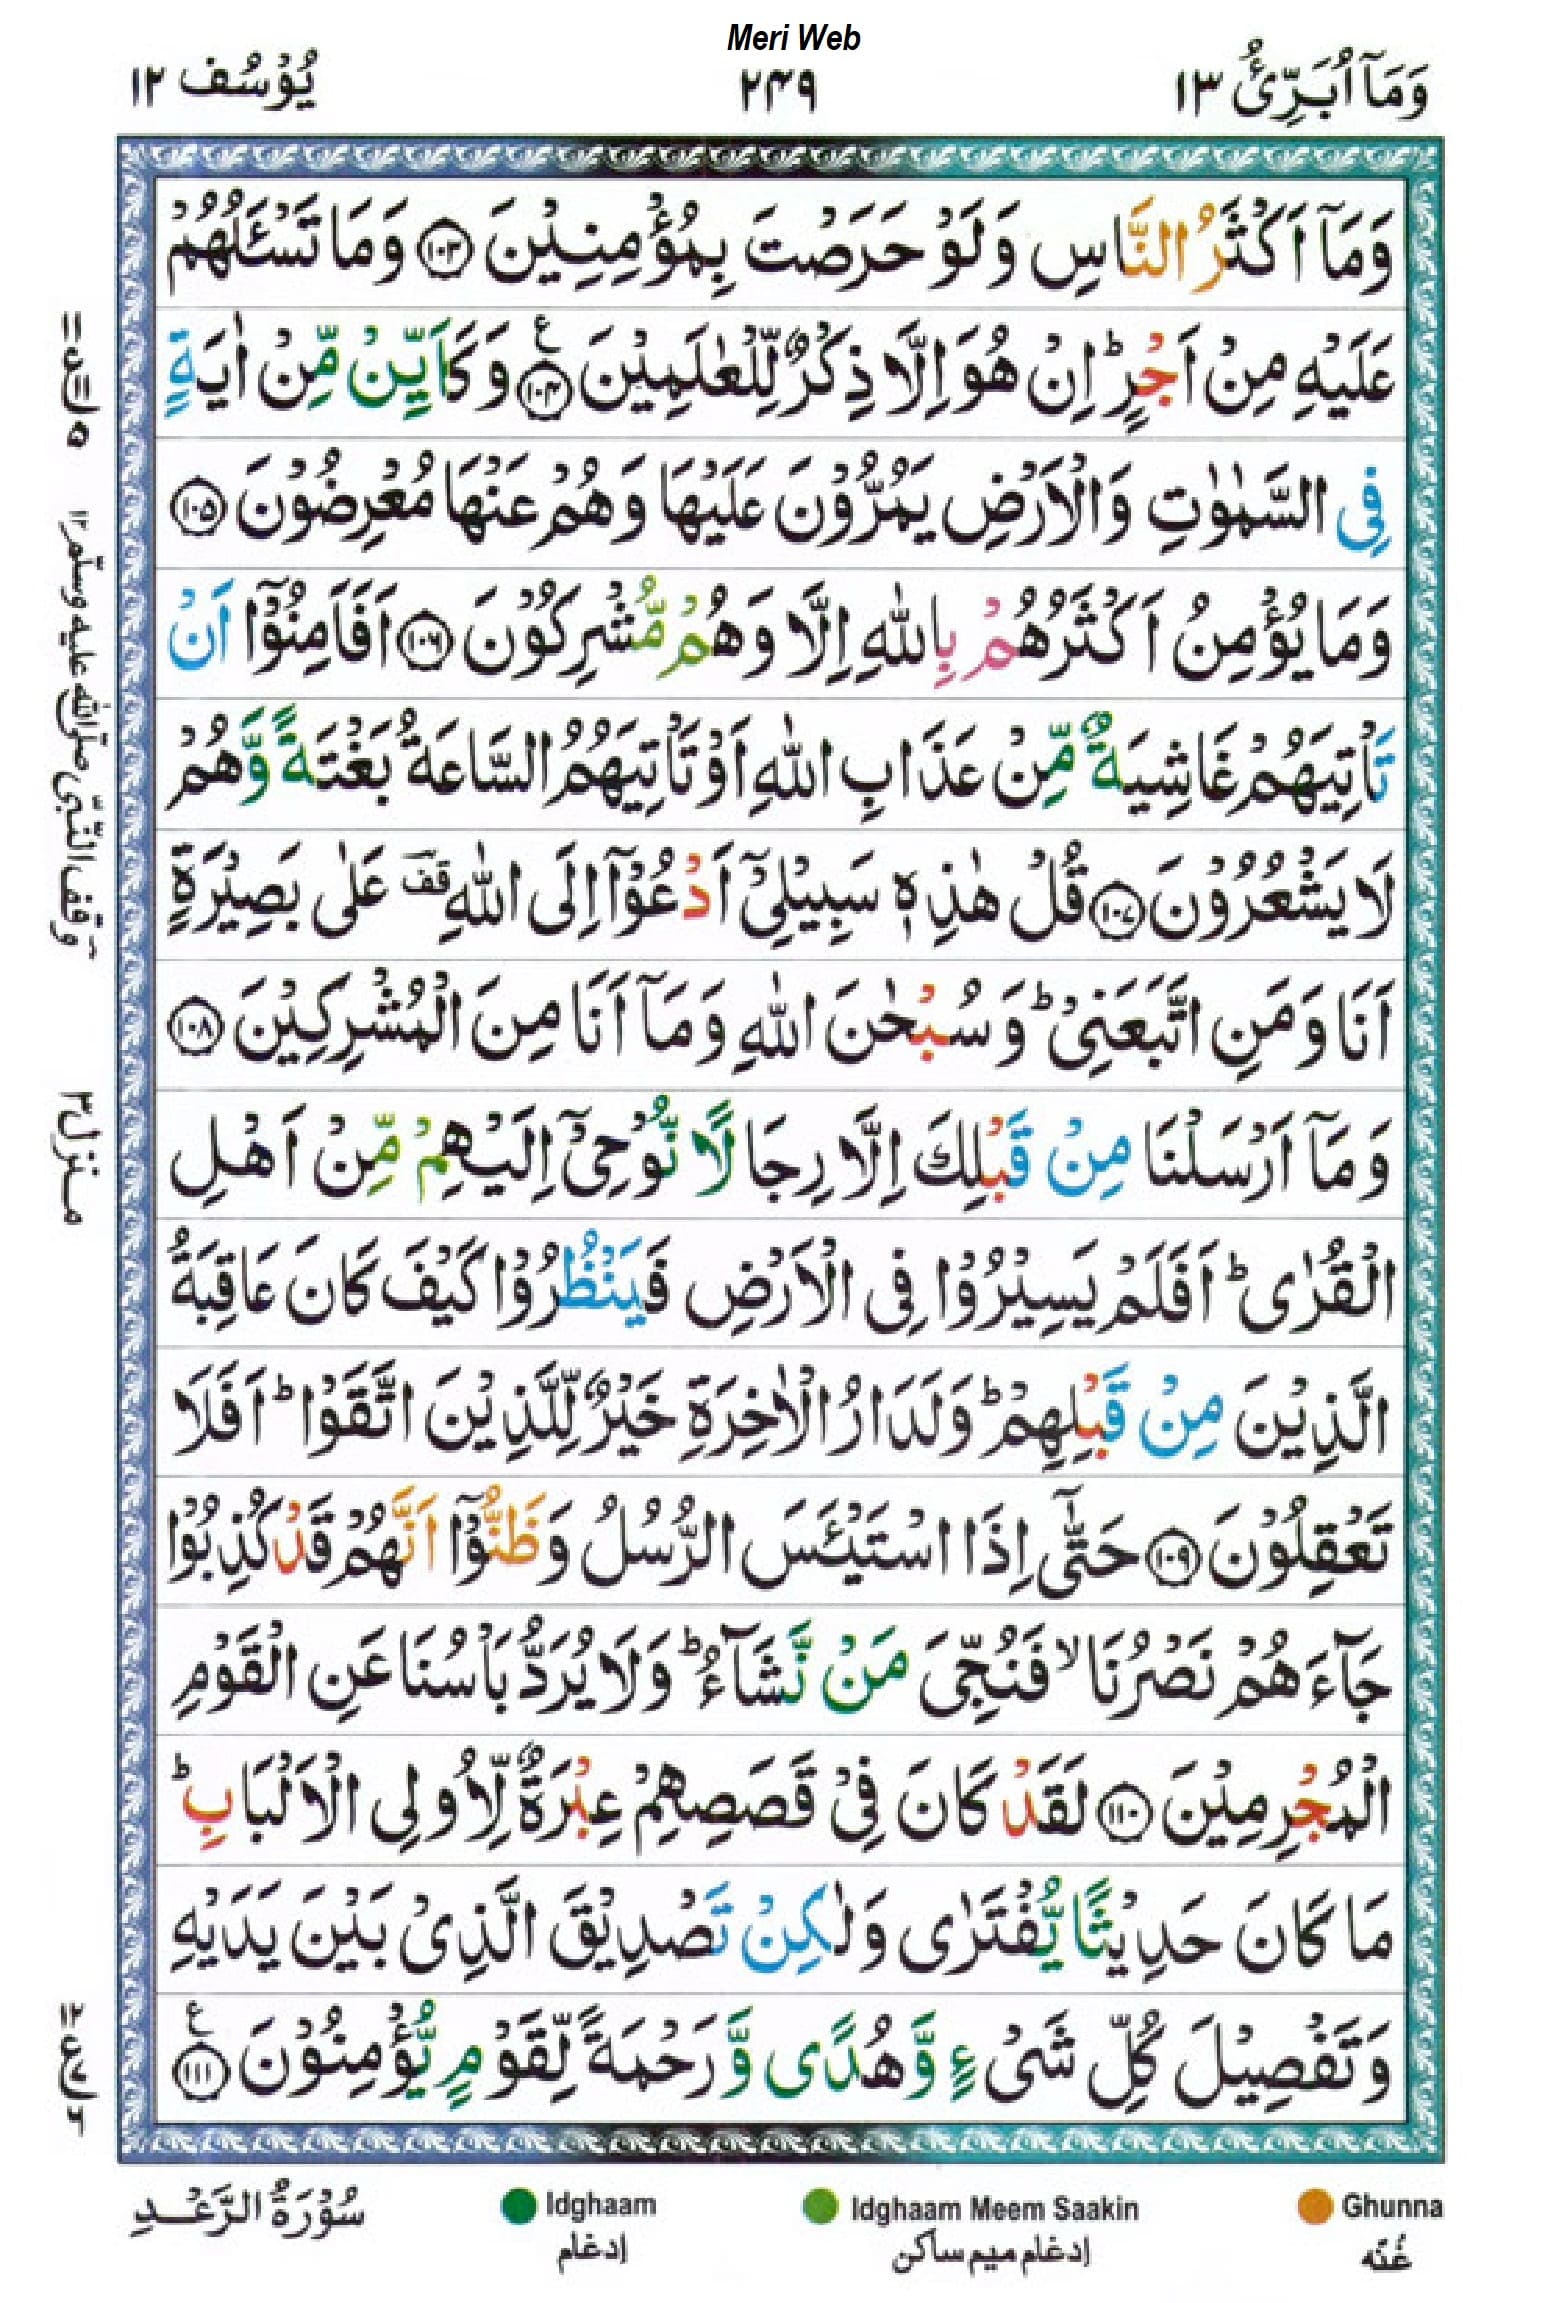 Meri Web
وَمَآ اُبَرِّئُ ١٣
٢٤٩
يُوْسُف ١٢
وَمَآ اَكْثَرُ النَّاسِ وَلَوْ حَرَصْتَ بِمُؤْمِنِيْنَ ١٠٣ وَمَا تَسْـَٔلُهُمْ
عَلَيْهِ مِنْ اَجْرٍ ؕ اِنْ هُوَ اِلَّا ذِكْرٌ لِّلْعٰلَمِيْنَ ١٠٤ ع وَكَاَيِّنْ مِّنْ اٰيَةٍ
فِي السَّمٰوٰتِ وَالْاَرْضِ يَمُرُّوْنَ عَلَيْهَا وَهُمْ عَنْهَا مُعْرِضُوْنَ ١٠٥
وَمَا يُؤْمِنُ اَكْثَرُهُمْ بِاللّٰهِ اِلَّا وَهُمْ مُّشْرِكُوْنَ ١٠٦ اَفَاَمِنُوْٓا اَنْ
تَاْتِيَهُمْ غَاشِيَةٌ مِّنْ عَذَابِ اللّٰهِ اَوْ تَاْتِيَهُمُ السَّاعَةُ بَغْتَةً وَّهُمْ
لَا يَشْعُرُوْنَ ١٠٧ قُلْ هٰذِهٖ سَبِيْلِيْٓ اَدْعُوْٓا اِلَى اللّٰهِ قف عَلٰى بَصِيْرَةٍ
اَنَا وَمَنِ اتَّبَعَنِيْ ؕ وَسُبْحٰنَ اللّٰهِ وَمَآ اَنَا مِنَ الْمُشْرِكِيْنَ ١٠٨
وَمَآ اَرْسَلْنَا مِنْ قَبْلِكَ اِلَّا رِجَالًا نُّوْحِيْٓ اِلَيْهِمْ مِّنْ اَهْلِ
الْقُرٰى ؕ اَفَلَمْ يَسِيْرُوْا فِي الْاَرْضِ فَيَنْظُرُوْا كَيْفَ كَانَ عَاقِبَةُ
الَّذِيْنَ مِنْ قَبْلِهِمْ ؕ وَلَدَارُ الْاٰخِرَةِ خَيْرٌ لِّلَّذِيْنَ اتَّقَوْا ؕ اَفَلَا
تَعْقِلُوْنَ ١٠٩ حَتّٰٓى اِذَا اسْتَيْـَٔسَ الرُّسُلُ وَظَنُّوْٓا اَنَّهُمْ قَدْ كُذِبُوْا
جَآءَهُمْ نَصْرُنَا ۙ فَنُجِّيَ مَنْ نَّشَآءُ ؕ وَلَا يُرَدُّ بَاْسُنَا عَنِ الْقَوْمِ
الْمُجْرِمِيْنَ ١١٠ لَقَدْ كَانَ فِيْ قَصَصِهِمْ عِبْرَةٌ لِّاُولِي الْاَلْبَابِ ؕ
مَا كَانَ حَدِيْثًا يُّفْتَرٰى وَلٰكِنْ تَصْدِيْقَ الَّذِيْ بَيْنَ يَدَيْهِ
وَتَفْصِيْلَ كُلِّ شَيْءٍ وَّهُدًى وَّرَحْمَةً لِّقَوْمٍ يُّؤْمِنُوْنَ ١١١ ع
وقف النّبی صلّی اللّٰہ علیہ وسلّم ١٢
منزل ٣
Idghaam
Idghaam Meem Saakin
Ghunna
إدغام
إدغام ميم ساكن
غُنّه
سُوْرَةُ الرَّعْدِ